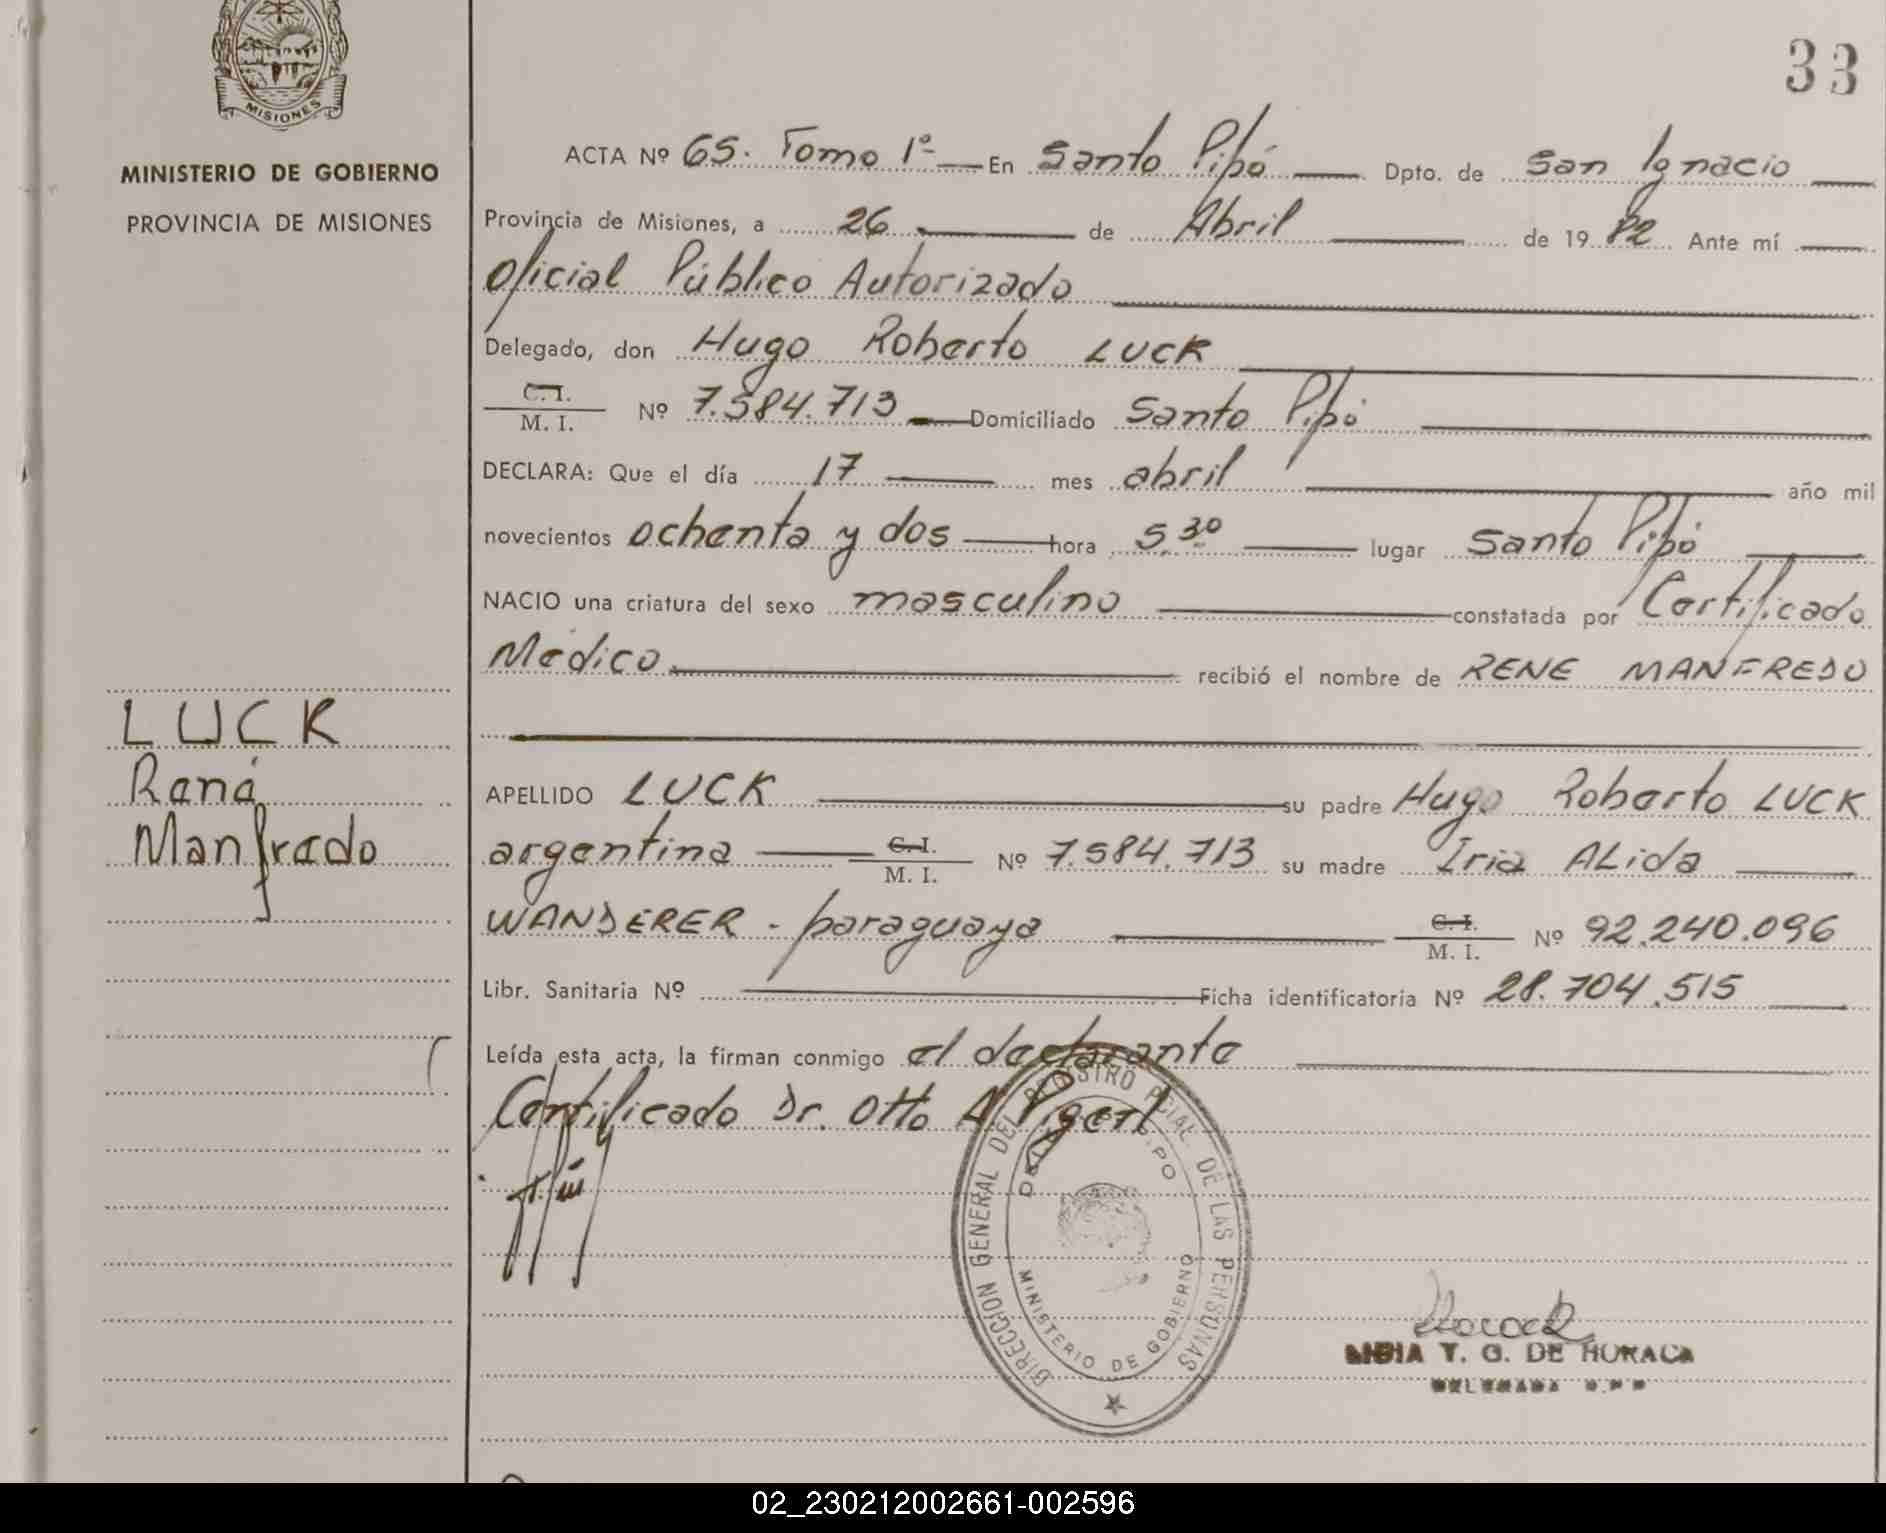 33
MISIONES
MINISTERIO DE GOBIERNO
PROVINCIA DE MISIONES
LUCK
René
Manfredo
ACTA Nº 65. Tomo 1º En Santo Pipó Dpto. de San Ignacio
Provincia de Misiones, a 26 de Abril de 19 82 Ante mí
Oficial Público Autorizado
Delegado, don Hugo Roberto LUCK
C. I.
M. I. Nº 7.584.713 Domiciliado Santo Pipó
DECLARA: Que el día 17 mes abril año mil
novecientos ochenta y dos hora 5.30 lugar Santo Pipó
NACIO una criatura del sexo masculino constatada por Certificado
Médico recibió el nombre de RENE MANFREDO
APELLIDO LUCK su padre Hugo Roberto LUCK
argentina C. I. M. I. Nº 7.584.713 su madre Iria ALida
WANDERER - paraguaya C. I. M. I. Nº 92.240.096
Libr. Sanitaria Nº Ficha identificatoria Nº 28.704.515
Leída esta acta, la firman conmigo el declarante
Certificado Dr. Otto A.
DIRECCION GENERAL DEL REGISTRO PCIAL DE LAS PERSONAS
MINISTERIO DE GOBIERNO
T. G. DE
02_230212002661-002596